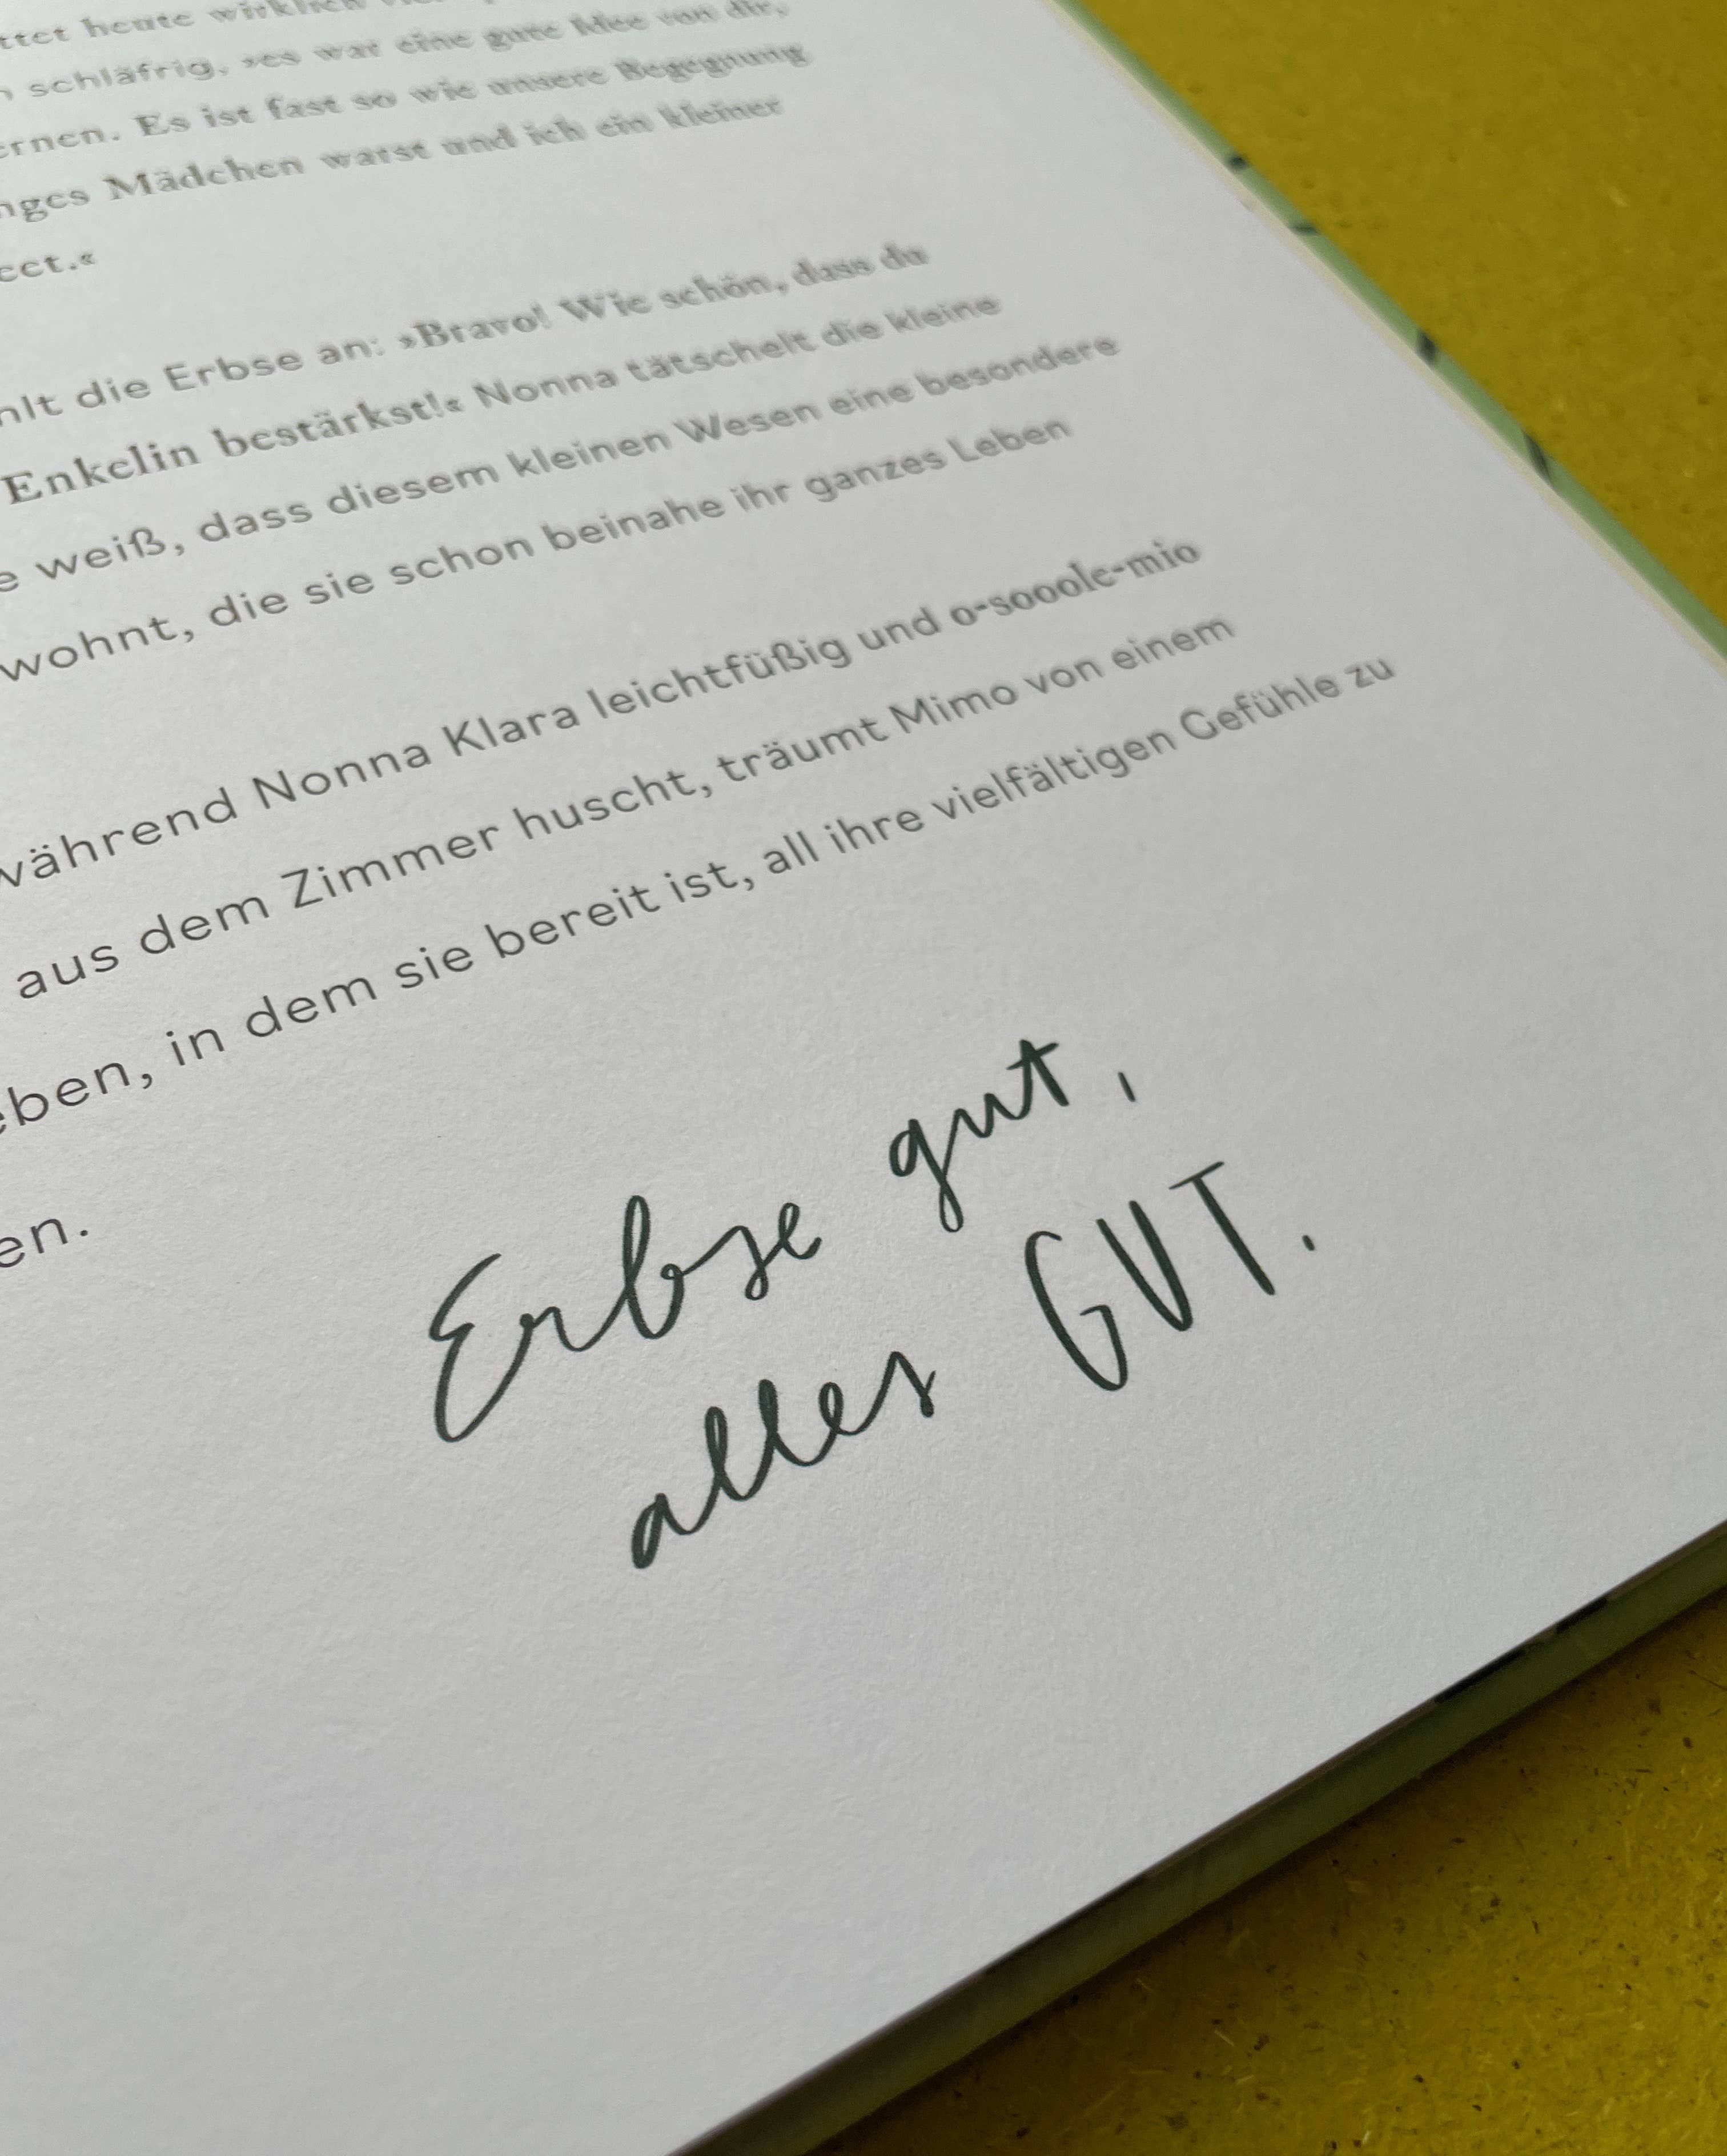 heute wirklich
schläfrig, »es war eine gute Idee von dir,
ernen. Es ist fast so wie unsere Begegnung
nges Mädchen warst und ich ein kleiner
ect.«
hlt die Erbse an: »Bravo! Wie schön, dass du
Enkelin bestärkst!« Nonna tätschelt die kleine
e weiß, dass diesem kleinen Wesen eine besondere
wohnt, die sie schon beinahe ihr ganzes Leben
während Nonna Klara leichtfüßig und o-sooole-mio
aus dem Zimmer huscht, träumt Mimo von einem
eben, in dem sie bereit ist, all ihre vielfältigen Gefühle zu
en.
Erbse gut,
alles GUT.